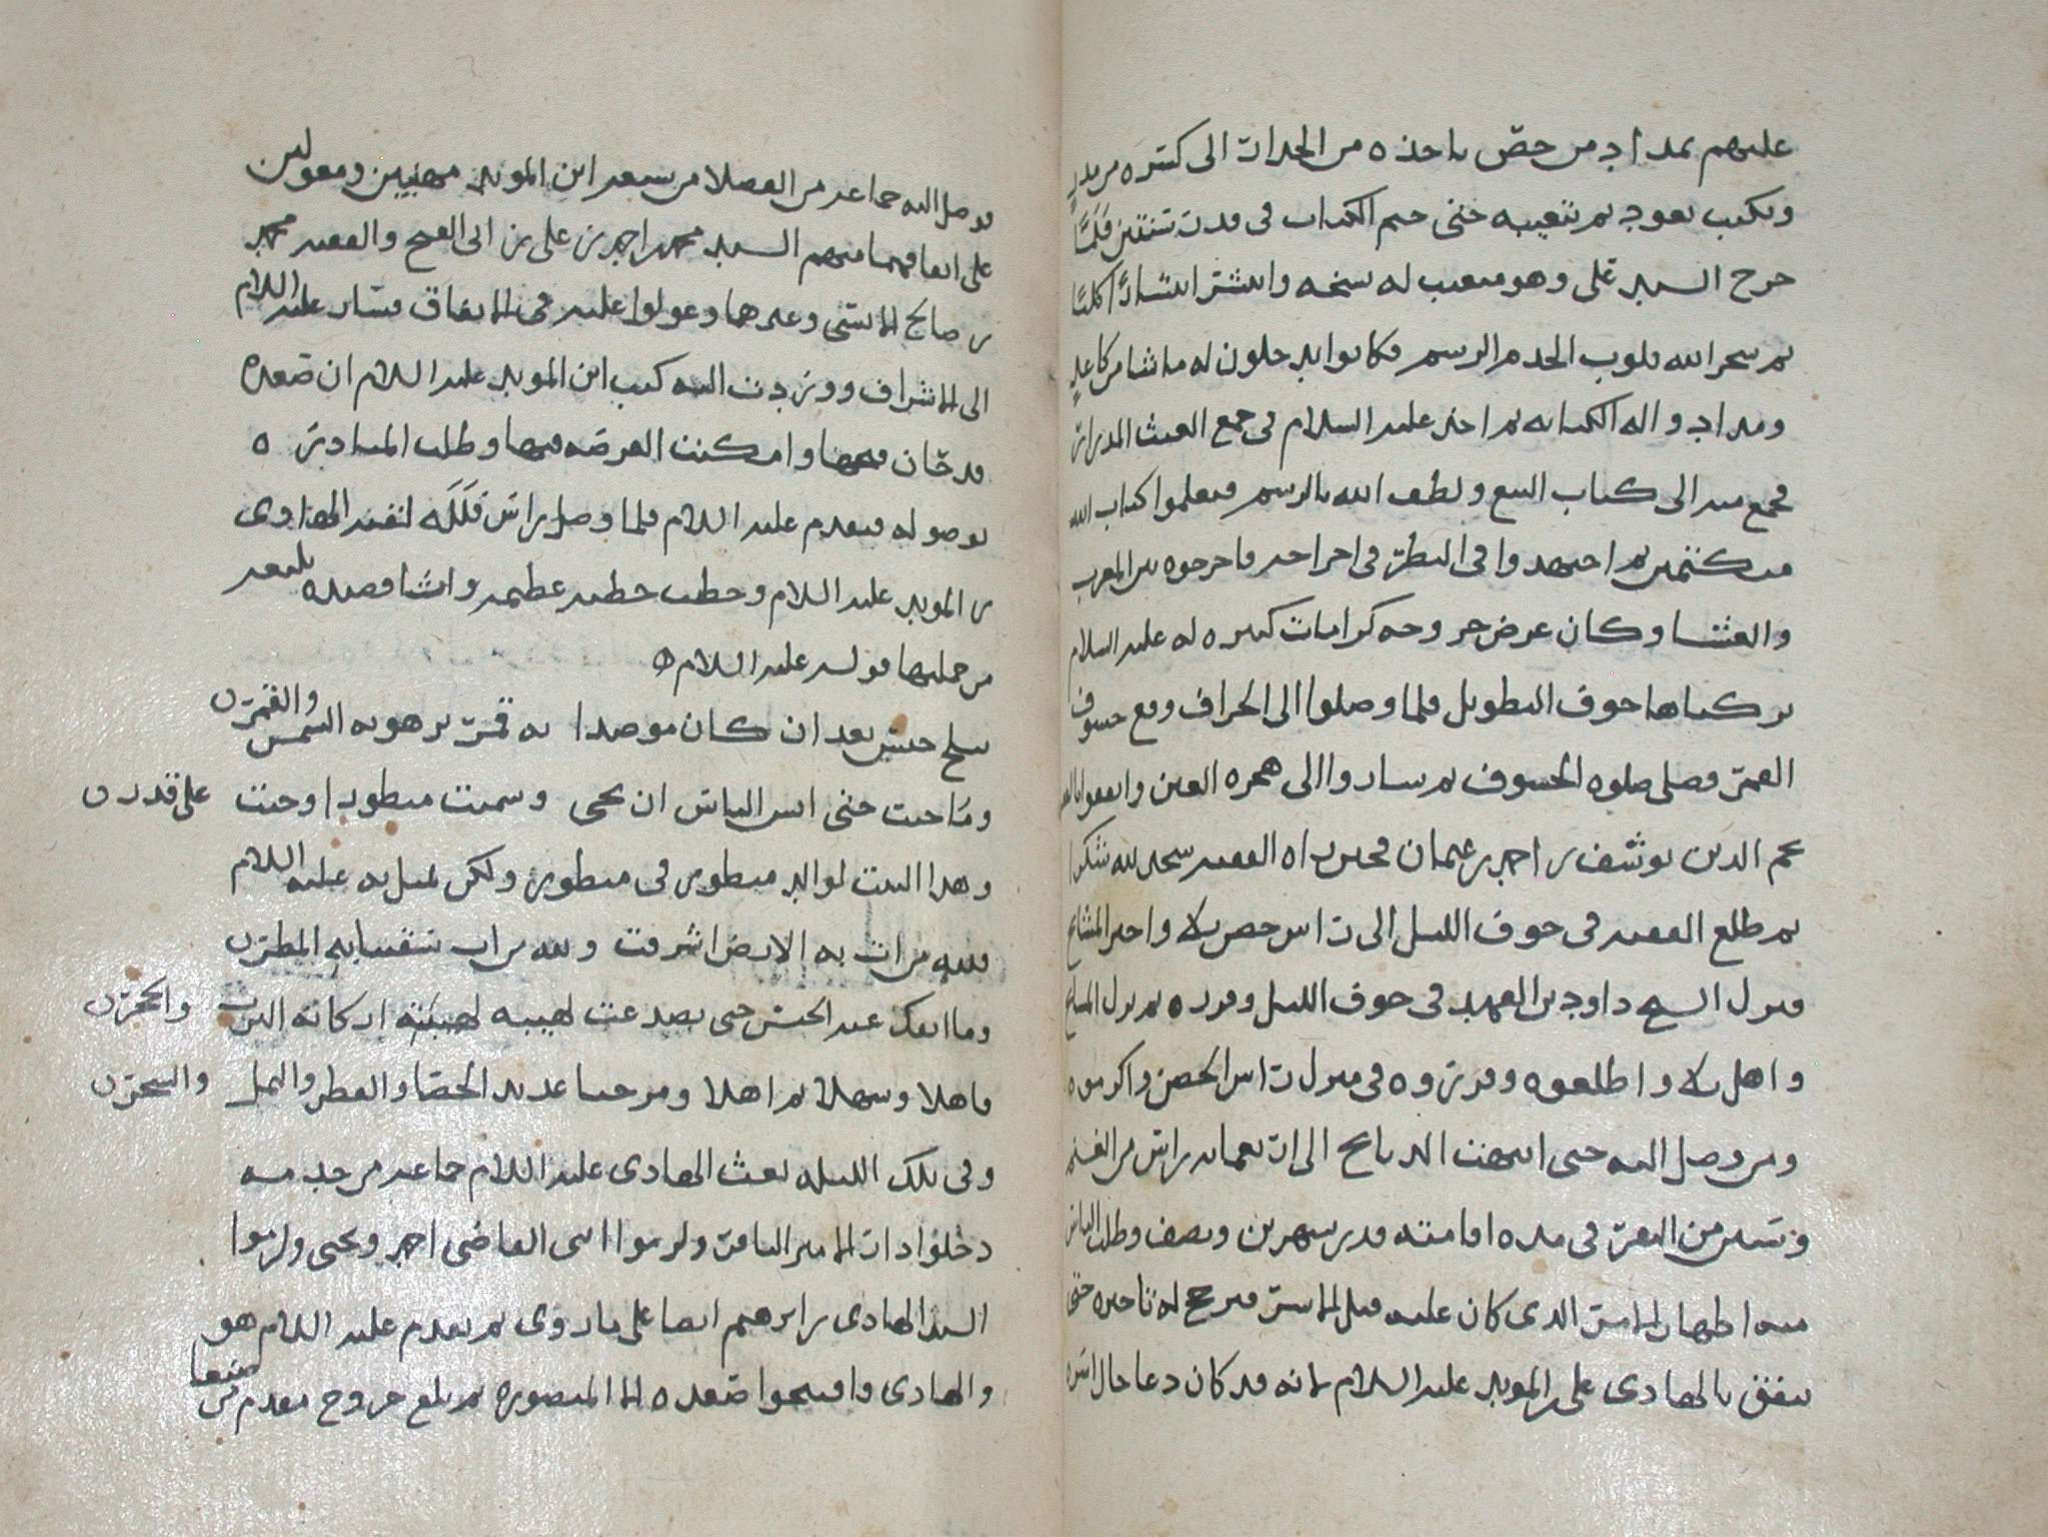 عليهم بمداد من حص ياخذه من الجدار الى كسره من مدر
ويكتب بعود ثم يغيبه حتى ختم الكتاب في مدة سنتين فلما
خرج السيد علي وهو معيب له نسخه وانتشر انتشارا كليا
ثم سخر الله قلوب الخدم الرسم فكانوا يدخلون له ما شا من كاغد
ومداد واله الكتابه ثم اخذ عليه السلام في جمع الغيث المدرار
فجمع منه الى كتاب البيع ولطف الله بالرسم فتعلموا كتاب الله
ثم اجتهدوا في النظر في اخراجه فاخرجوه بين المغرب
والعشا وكان عرض خروجه كرامات كثيره له عليه السلام
تركناها خوف التطويل فلما وصلوا الى الحراف وقع خسوف
القمر فصلى صلوه الخسوف ثم ساروا الى هجره العين واتفقوا
نجم الدين يوسف بن احمد بن عثمان فحين راه الفقيه سجد لله شكرا
ثم طلع الفقيه في جوف الليل الى راس حصن ثلا واخبر المشايخ
فنزل الشيخ داود بن الفهد في جوف الليل وفرده ثم نزل المشايخ
واهل ثلا واطلعوه وقرروه في منزل راس الحصن واكرموه
ومن وصل اليه حتى انتهت الذبايح الى اربعمايه راس من الغنم
ونيف من البقر في مده اقامته قدر شهرين ونصف وطلب الناس
منه اظهار الامر الذي كان عليه قبل الاسر فرجح له تاخيره حتى
يتفق بالهادي علي بن المويد عليه السلام لانه قد كان دعا حال اسره
فوصل اليه جماعه من الفضلا من شيعه ابن المويد مهنيين ومعولين
على اتفاقهما منهم السيد محمد احمد بن علي بن ابي الفتح والفقيه محمد
بن صالح الانسي وغيرهما وعولوا عليه في الاتفاق فسار عليه السلام
الى الاشراف ووردت اليه كتب ابن المويد عليه السلام ان صعده
قد حان فتحها وامكنت الفرصه فيها وطلب المبادره
بوصوله فتقدم عليه السلام فلما وصل براش فلله لقيه الهادي
بن المويد عليه السلام وخطب خطبه عظيمه وانشا قصيده بليغه
من جملتها قوله عليه السلام
تبلج حبس بعد ان كان موصدا به قمر يزهو به الشمس والقمر
وما جيت حتى ايس الناس ان تجي وسميت منظورا وجيت على قدر
وهذا البيت لوالد منظور في منظور ولكن تمثل به عليه السلام
فلله من ارت به الارض اشرقت ولله من اب تنقسابه المطر
وما انفك عند الحبس حتى تصدعت لهيبه لهيبته اركانه الترب والحجر
فاهلا وسهلا ثم اهلا ومرحبا عديد الحصا والقطر والنمل والشجر
وفي تلك الليله بعث الهادي عليه السلام جماعه من خدمه
دخلوا دار الامير الباقر ولزموا ابني القاضي احمد ويحيى ولزموا
السيد الهادي بن ابرهيم ايضا على ما روى ثم تقدم عليه السلام هو
والهادي وافتتحوا صعده الا المنصوره ثم بلغ خروج مقدم من صنعا